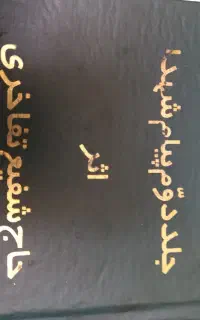 جلد دوّم پیام شهدا
اثر
حاج شفیع تفاخری